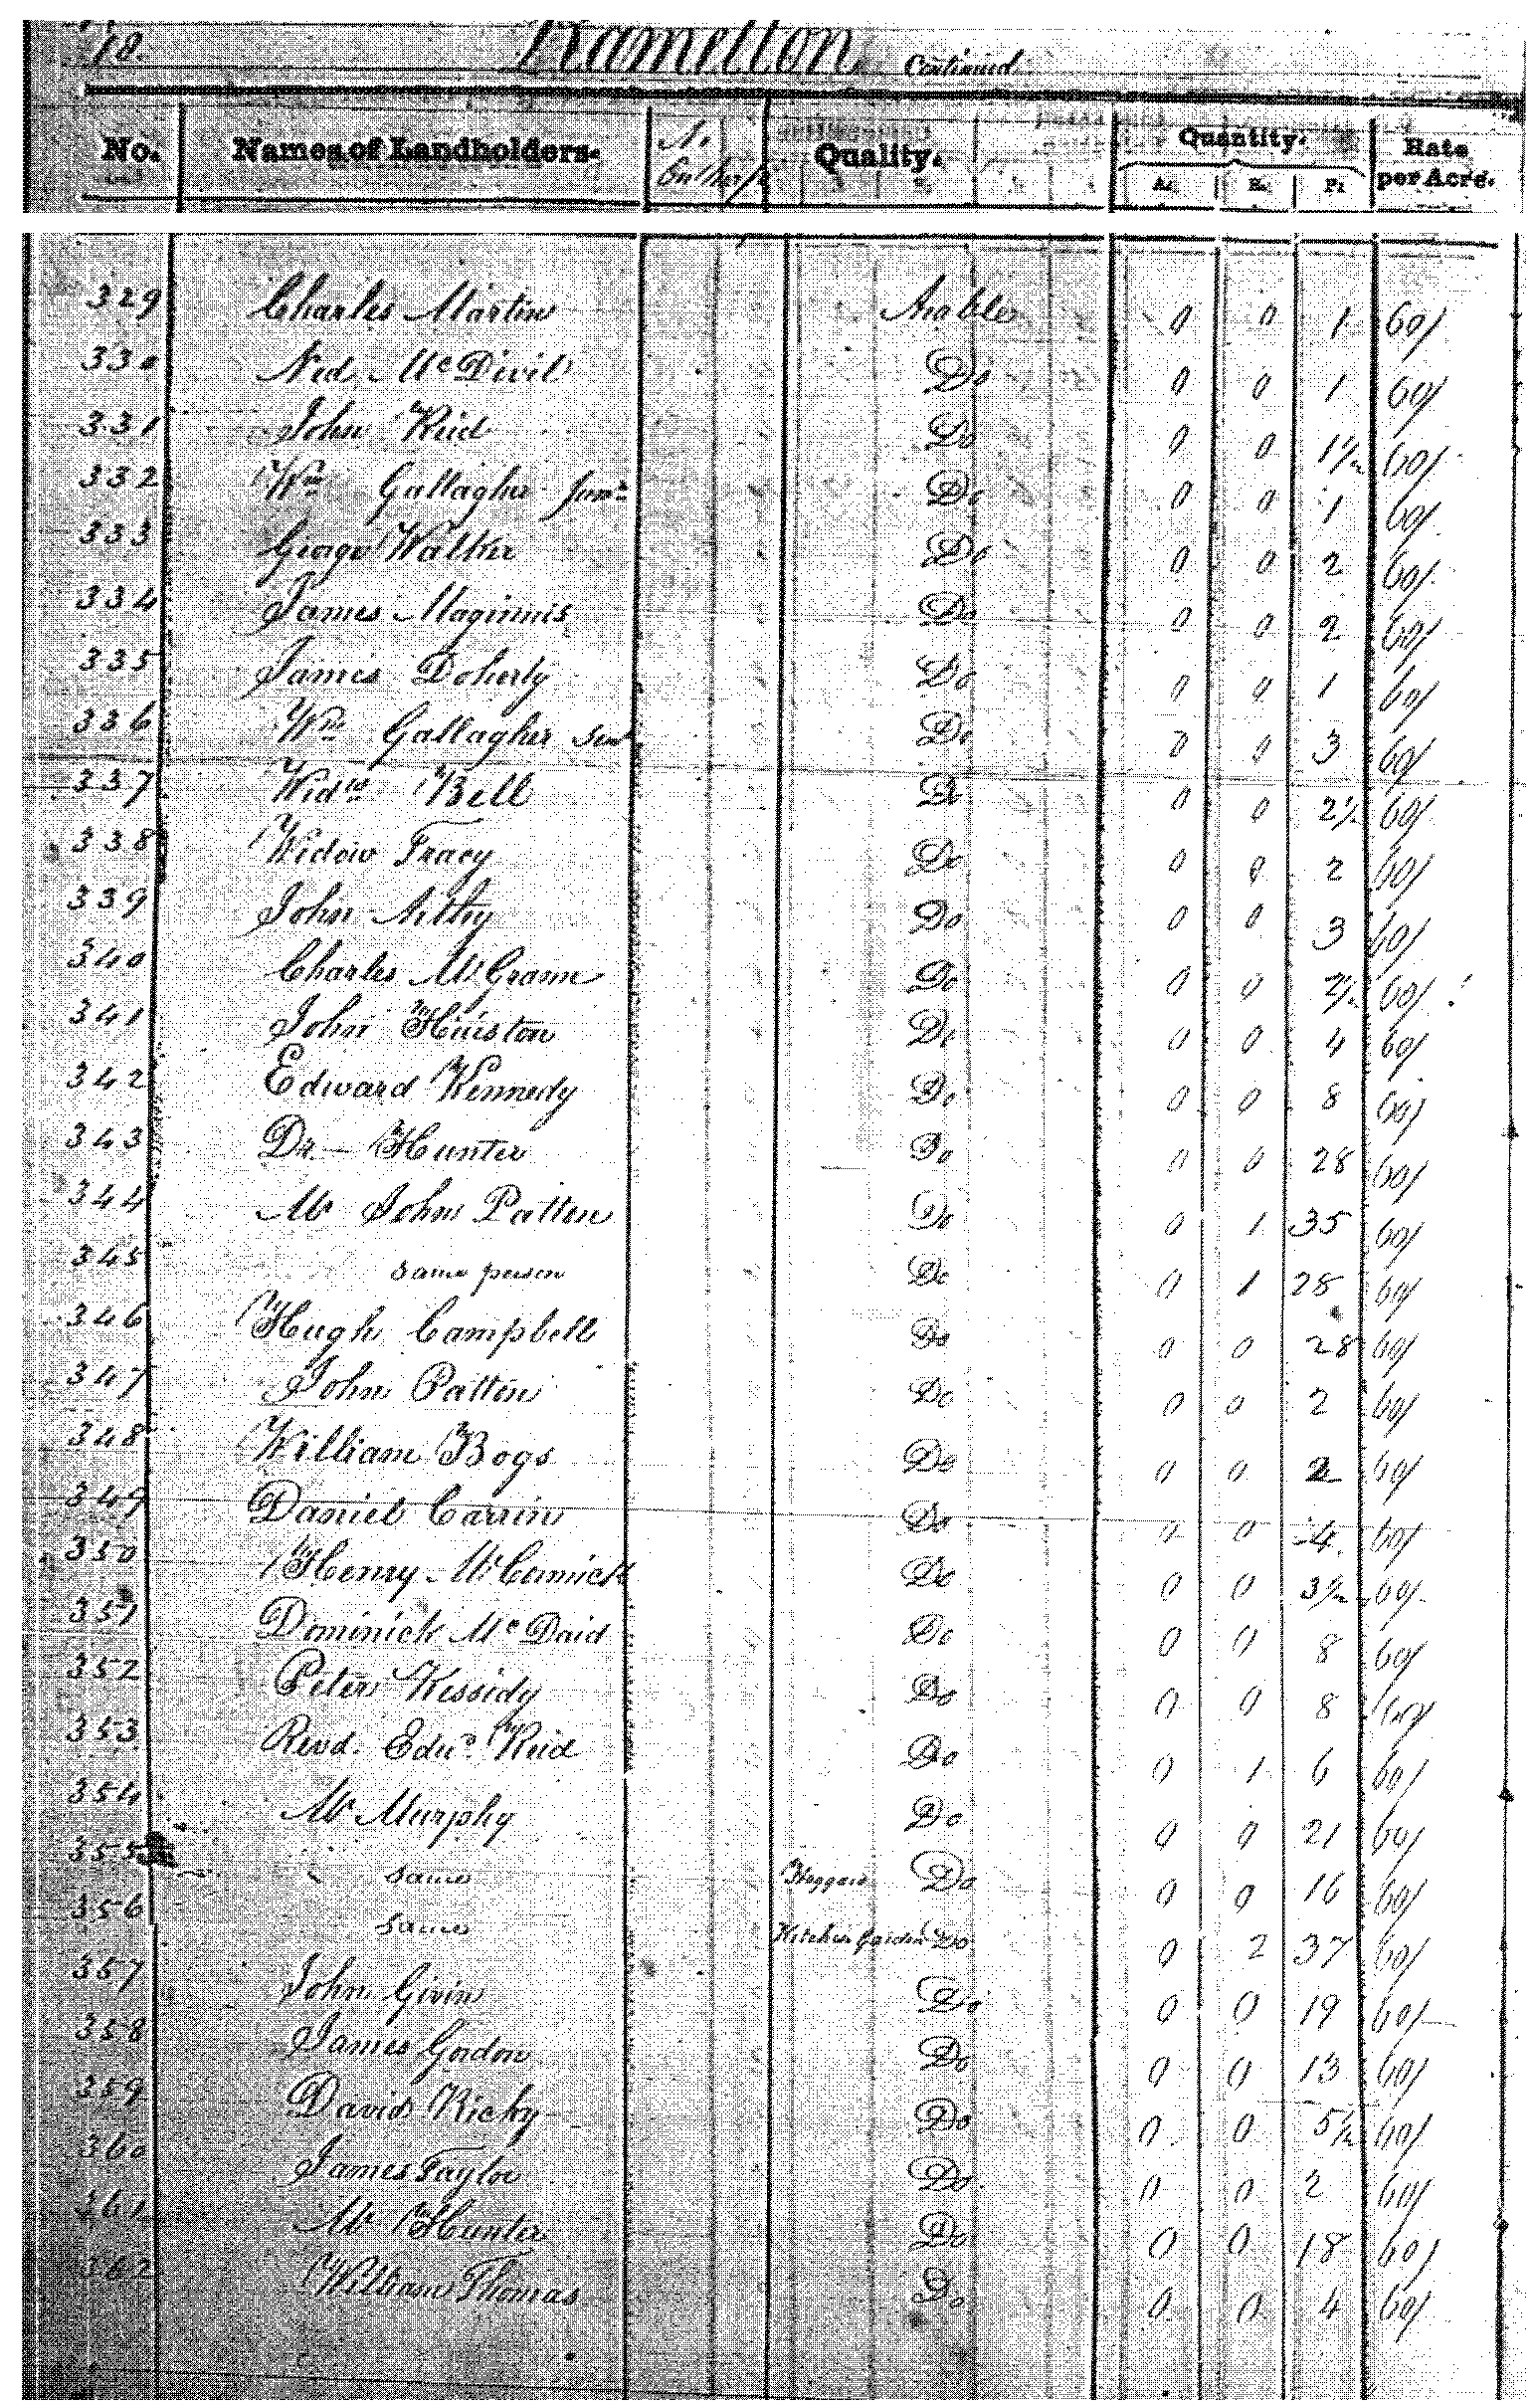 18. Ramelton Continued
No. Names of Landholders. Quality. Quantity. A. R. P. Rate per Acre.
329 Charles Martin Arable 0 0 1 60/
330 Ned McDivit Do 0 0 1 60/
331 John Reid Do 0 0 1½ 60/
332 Wm Gallagher Junr Do 0 0 1 60/
333 George Walker Do 0 0 2 60/
334 James Maginnis Do 0 0 2 60/
335 James Doherty Do 0 0 1 60/
336 Wm Gallagher Senr Do 0 0 3 60/
337 Widw Bell Do 0 0 2½ 60/
338 Widow Tracy Do 0 0 2 60/
339 John Do 0 0 3 60/
340 Charles McGrann Do 0 0 2½ 60/
341 John Huiston Do 0 0 4 60/
342 Edward Kennedy Do 0 0 8 60/
343 Dr. Hunter Do 0 0 28 60/
344 Mr John Patton Do 0 1 35 60/
345 same person Do 0 1 28 60/
346 Hugh Campbell Do 0 0 28 60/
347 John Patton Do 0 0 2 60/
348 William Bogs Do 0 0 2 60/
349 Daniel Carrin Do 0 0 4 60/
350 Henry McCormick Do 0 0 3½ 60/
351 Dominick McDaid Do 0 0 8 60/
352 Peter Kessidy Do 0 0 8 60/
353 Revd. Edwd Reid Do 0 1 6 60/
354 Mr Murphy Do 0 0 21 60/
355 same Haggard Do 0 0 16 60/
356 same Kitchen Garden Do 0 2 37 60/
357 John Givin Do 0 0 19 60/
358 James Gordon Do 0 0 13 60/
359 David Richy Do 0 0 5½ 60/
360 James Taylor Do 0 0 2 60/
361 Mr Hunter Do 0 0 18 60/
362 William Thomas Do 0 0 4 60/